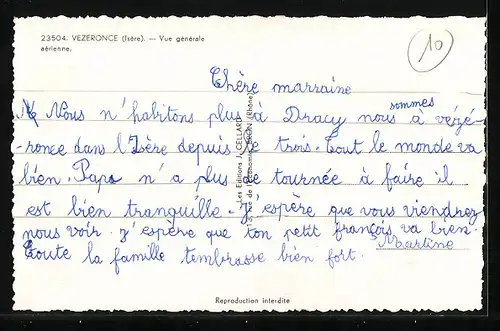 23504. VEZERONCE (Isère). — Vue générale
aérienne.
10
Chère marraine
Nous n'habitons plus à Dracy nous sommes à vézé-
-ronce dans l'Isère depuis le trois. Tout le monde va
bien. Papa n'a plus de tournée à faire il
est bien tranquille. J'espère que vous viendrez
nous voir. J'espère que ton petit françois va bien.
Toute la famille tembrasse bien fort.
Martine
Les Editions J. CELLARD
BRON (Rhône)
Reproduction interdite